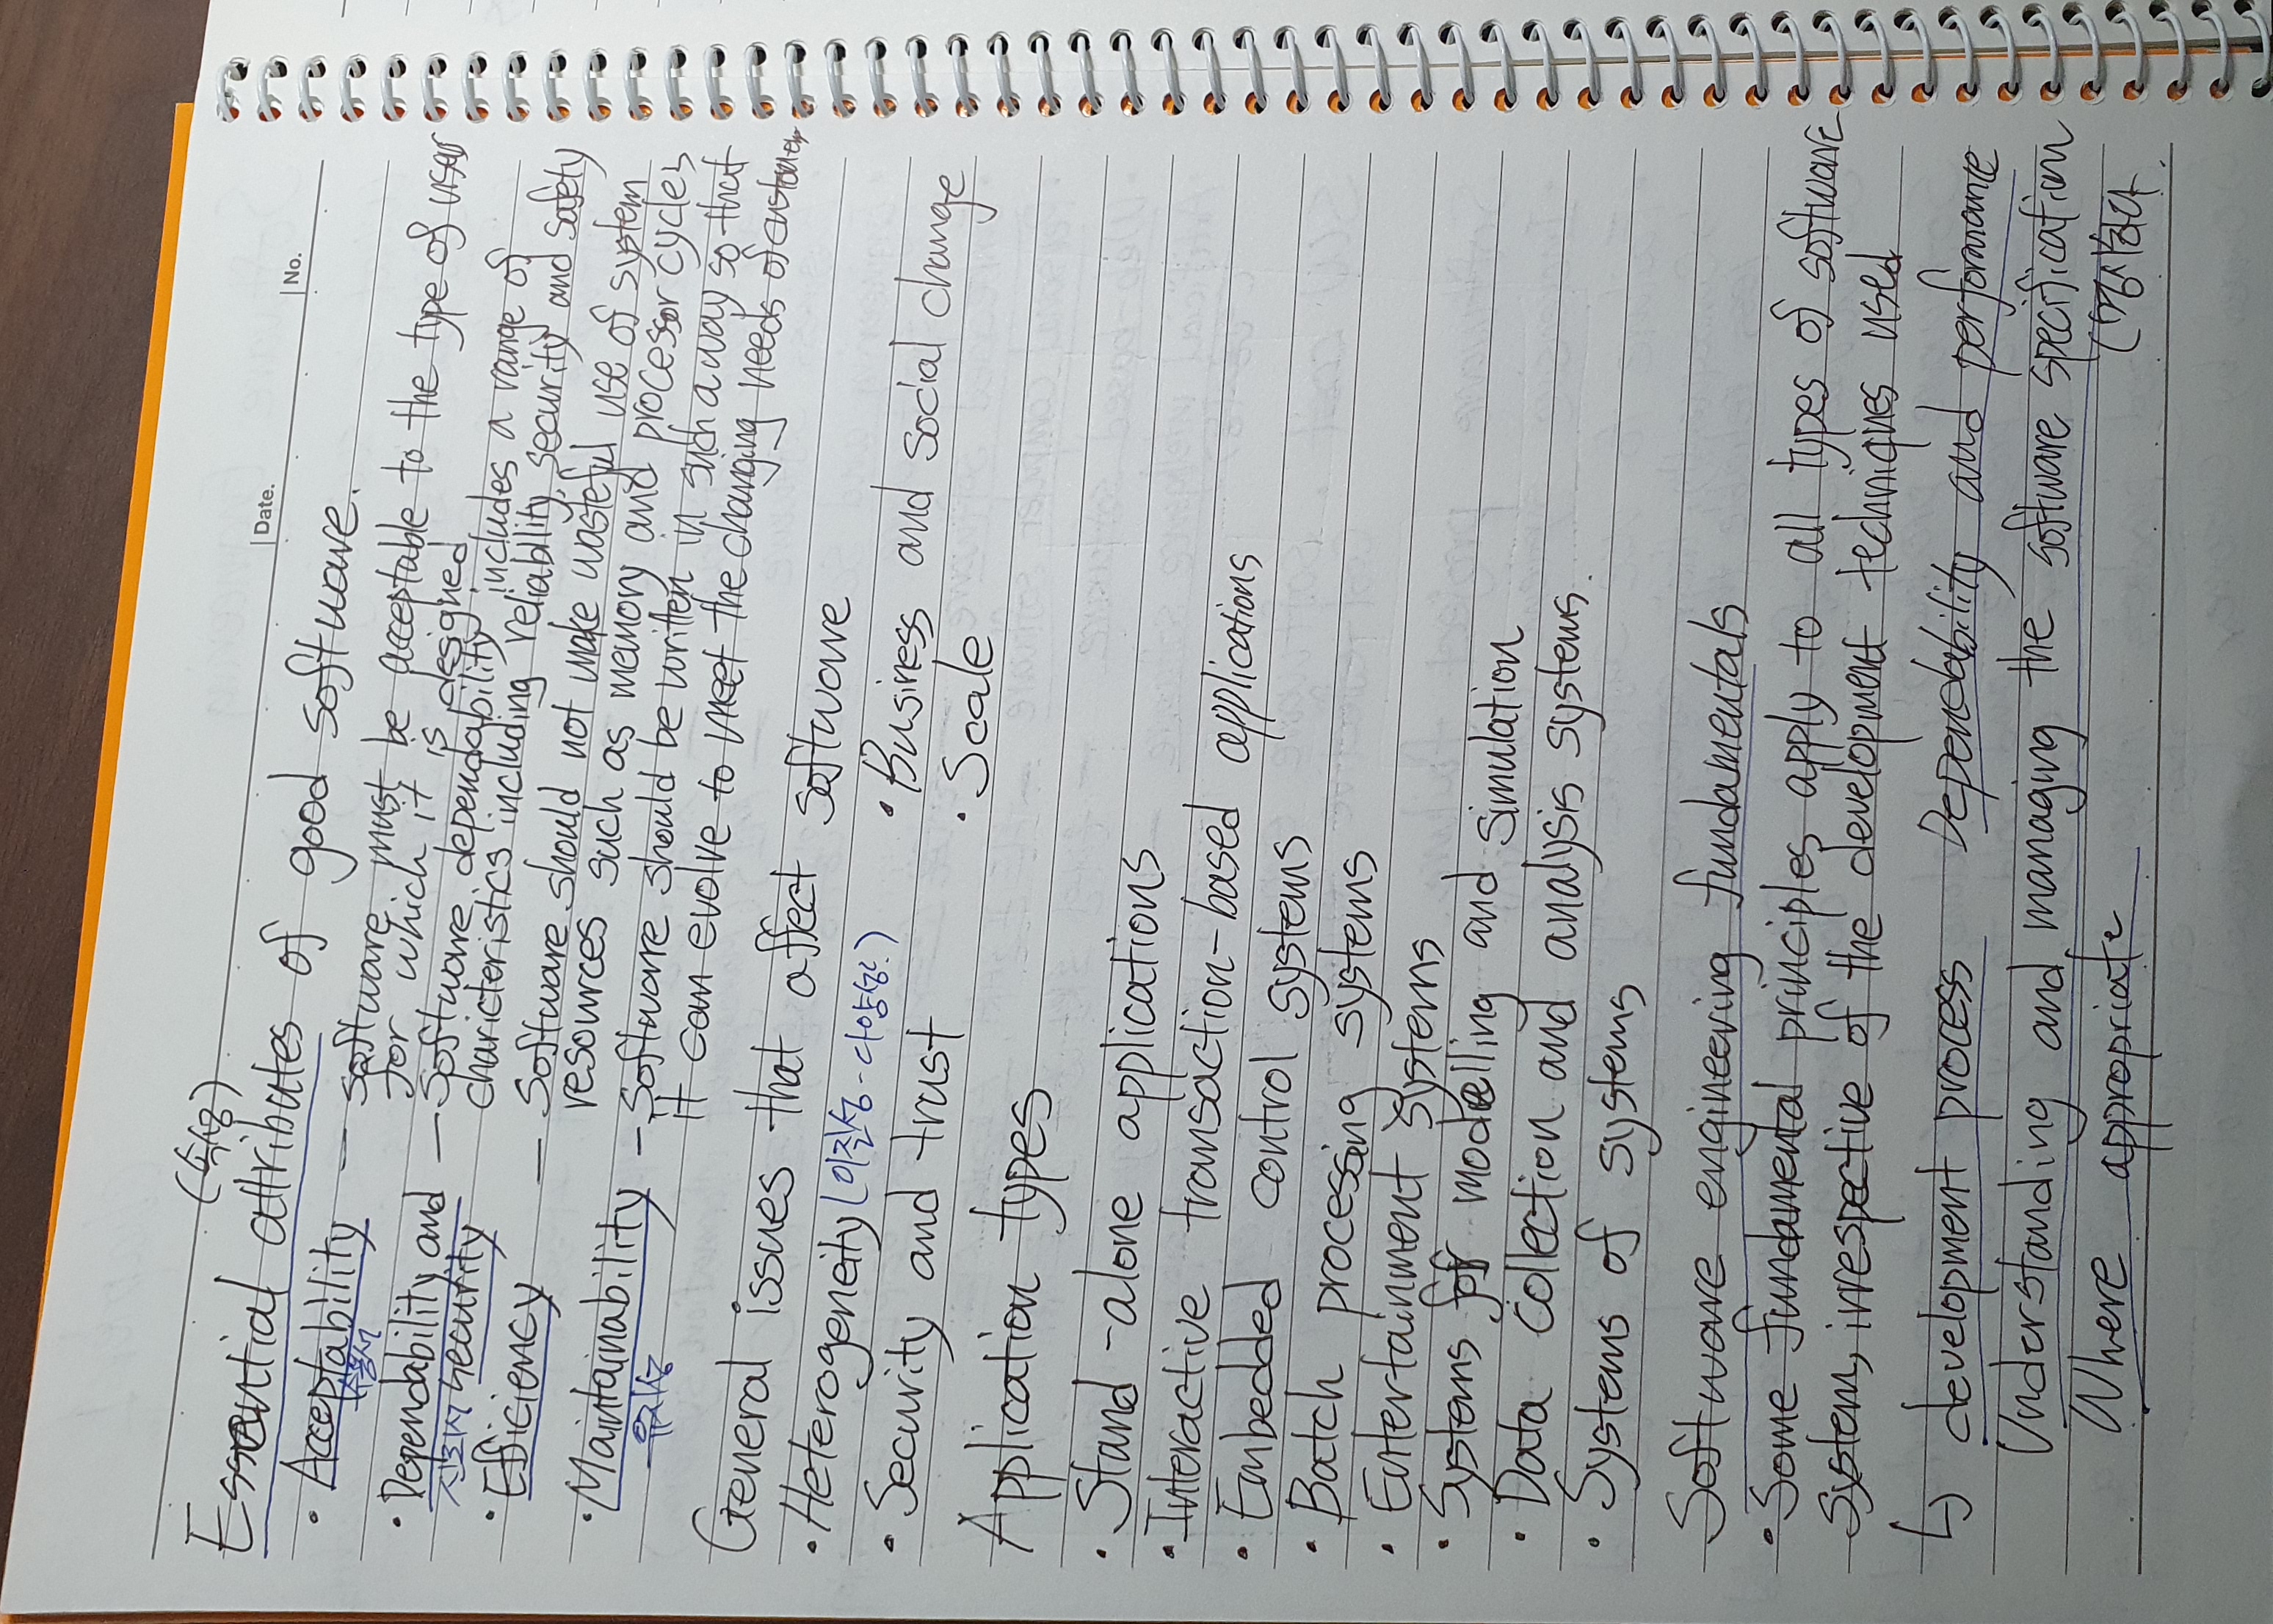 (속성)
Date.
No.
Essential attributes of good software.
· Acceptability — software must be acceptable to the type of users
수용성
for which it is designed
· Dependability and — Software dependability includes a range of
신뢰성 security
charicteristics including reliability, security and safety
· Efficiency — Software should not make wasteful use of system
resources such as memory and processor cycles
· Maintainability — Software should be written in such a way so that
유지성
it can evolve to meet the changing needs of customer
General issues that affect software
· Heterogeneity (이질성 - 다양성?)
· Business and social change
· Security and trust
· Scale
Application types
· Stand-alone applications
· Interactive transaction-based applications
· Embedded control systems
· Batch processing systems
· Entertainment systems
· Systems for modelling and simulation
· Data collection and analysis systems.
· Systems of systems
Software engineering fundamentals
· Some fundamental principles apply to all types of software
system, irrespective of the development techniques used
↳ development process Dependability and performance
Understanding and managing the software specification
Where appropriate